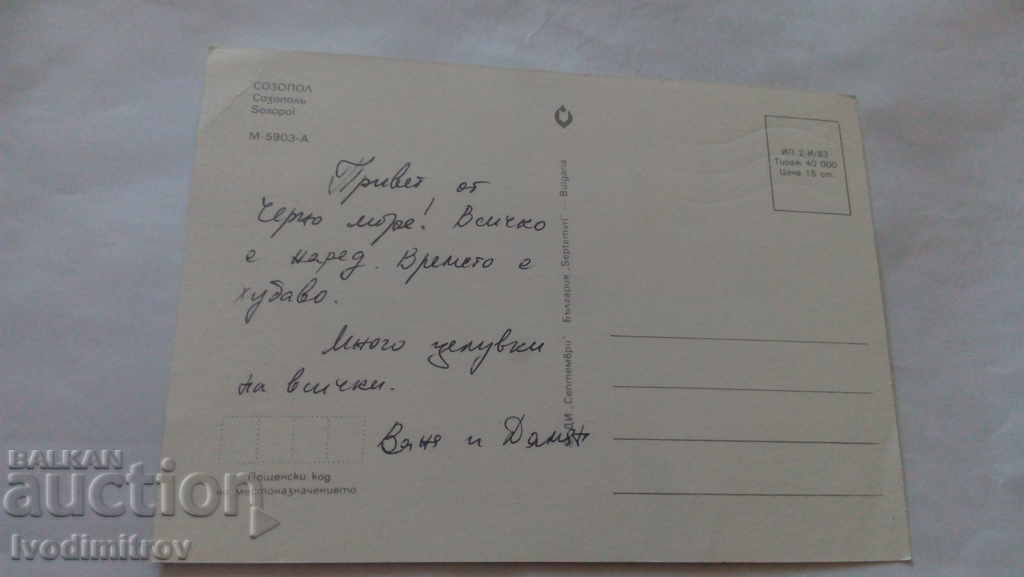 СОЗОПОЛ
Созополь
Sozopol
М-5903-А
Привет от
Черно море! Всичко
е наред. Времето е
хубаво.
Много целувки
на всички.
Ваня и Дамян
Пощенски код
на местоназначението
ДИ „Септември" България „Septemvri" Bulgaria
ИП 2-И/83
Тираж 40 000
Цена 16 ст.
BALKAN
auction
Ivodimitrov